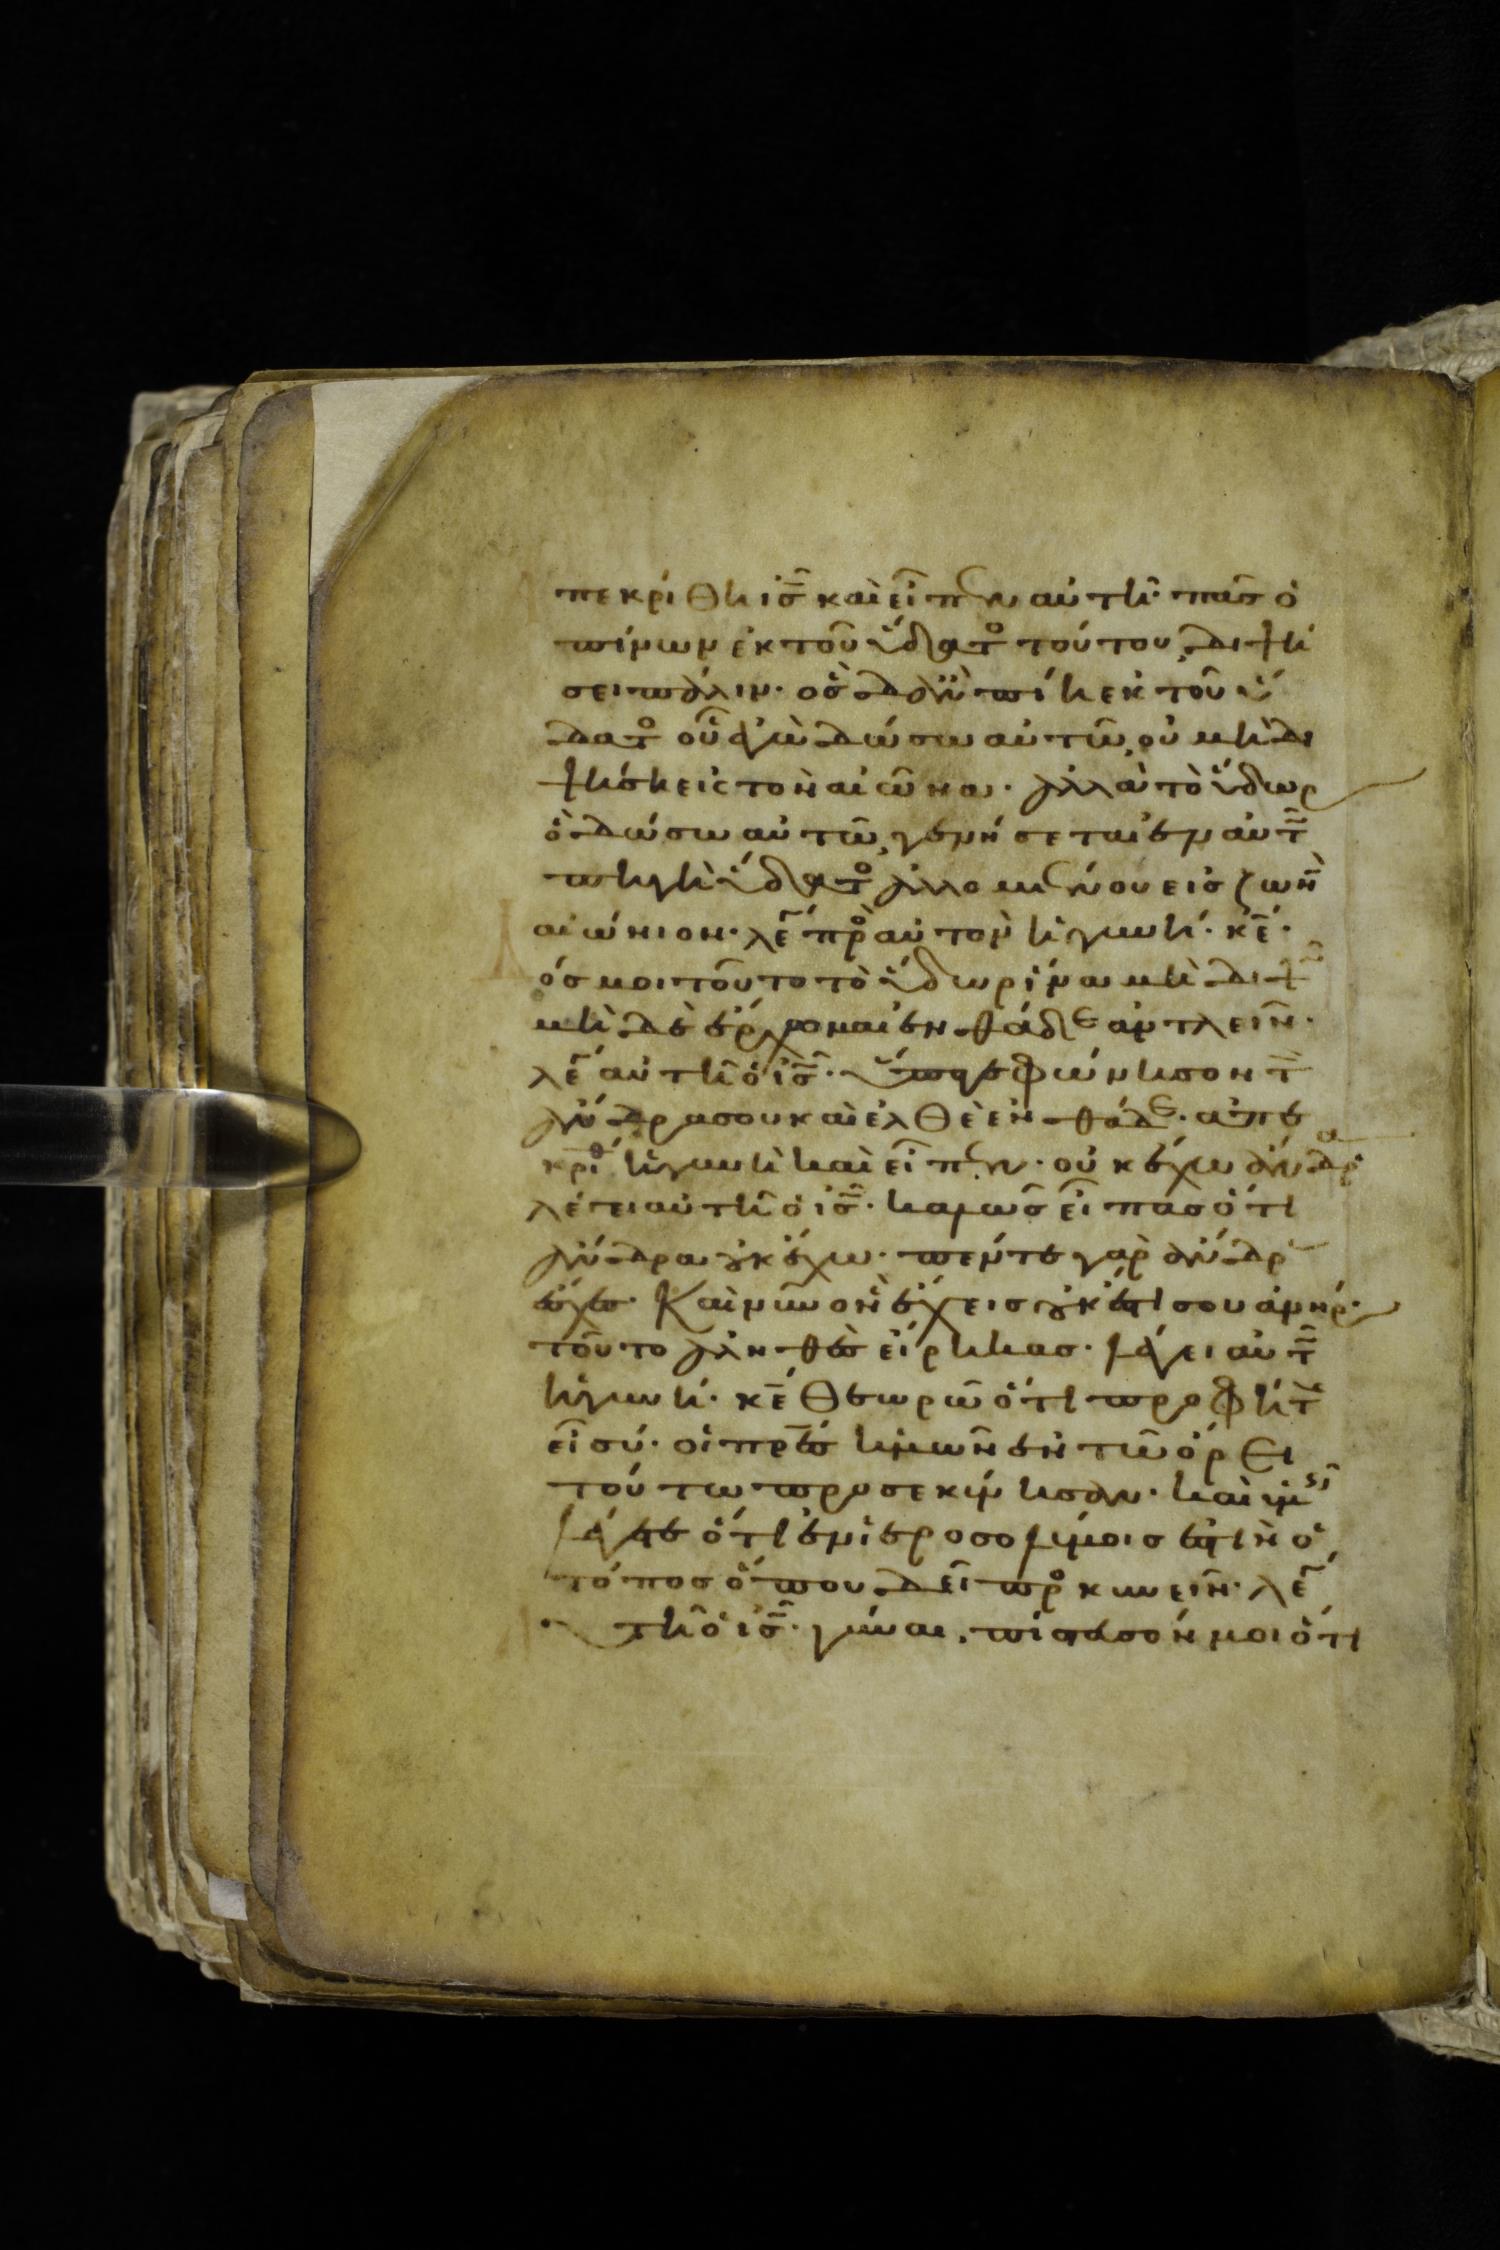 πεκρίθη ἰς̅ καὶ εἶπεν αὐτῆ· πᾶσ ὁ
πίνων ἐκ τοῦ ὕδατο τούτου, διψή
σει πάλιν· ὁσ δ' ἂν πίη ἐκ τοῦ ὕ
δατο οὗ ἐγὼ δώσω αὐτῶ, οὐ μὴ δι
ψήση εἰς τὸν αἰῶνα· ἀλλὰ τὸ ὕδωρ
ὃ δώσω αὐτῶ, γενήσεται ἐν αὐτ
πηγὴ ὕδατο ἁλλομένου εἰσ ζωὴν
αἰώνιον· λέ πρὸ αὐτὸν ἡ γυνή· κ̅ε̅·
όσ μοι τοῦτο τὸ ὕδωρ ἵνα μὴ διψῶ
μὴ δὲ ἔρχομαι ἐνθάδε ἀντλεῖν·
λέ αὐτῆ ὁ ἰς̅· ὕπαγε φώνησον τ
ἄνδρα σου καὶ ἐλθὲ ἐνθάδε· ἀπε
κρίθ ἡ γυνὴ καὶ εἶπεν· οὐκ ἔχω ἄνδρα
λέγει αὐτῆ ὁ ἰς̅· καλῶσ εἶπασ ὅτι
ἄνδρα οὐκ ἔχω· πέντε γὰρ ἄνδρ
ἔσχεσ· Καὶ νῦν ὃν ἔχεισ οὐκ ἔστι σου ἀνήρ·
τοῦτο ἀληθὲσ εἴρηκασ· λέγει αὐτ
ἡ γυνή· κ̅ε̅ θεωρῶ ὅτι προφήτ
εἶ σύ· οἱ πρ̅εσ ἡμῶν ἐν τῶ ὄρει
τούτω προσεκύνησαν· καὶ ὑμεῖσ
λέγετε ὅτι ἐν ἱεροσολύμοισ ἐστὶν ὁ
τόποσ ὅπου δεῖ προκυνεῖν· λέ
τῆ ὁ ἰς̅· γύναι, πίστευσόν μοι ὅτι